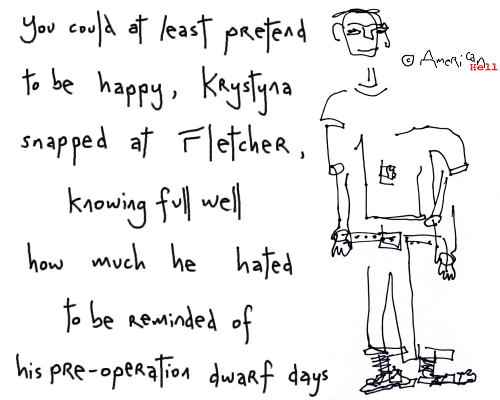 You could at least pretend
to be happy, Krystyna
snapped at Fletcher,
knowing full well
how much he hated
to be reminded of
his pre-operation dwarf days
© American
Hell